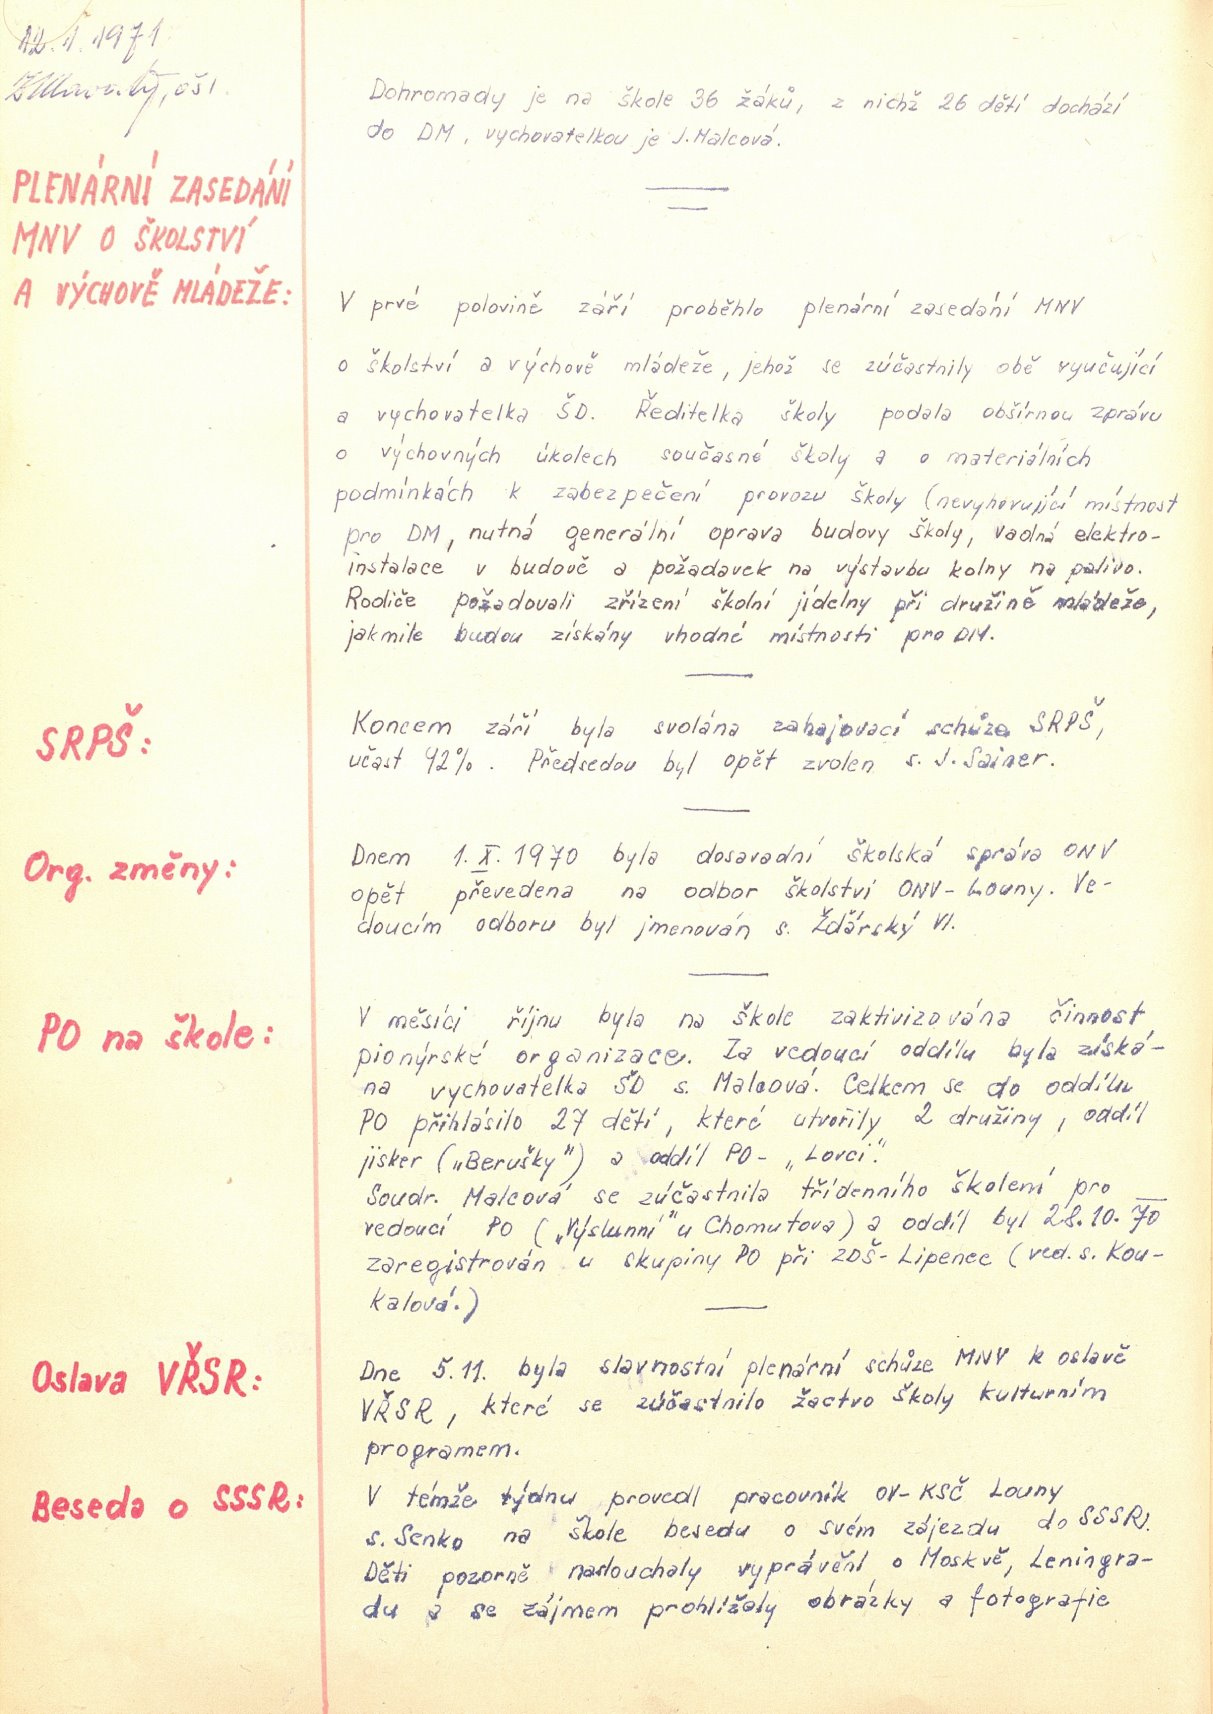 12. 1. 1971
, oši.
Dohromady je na škole 36 žáků, z nichž 26 dětí dochází
do DM, vychovatelkou je J. Malcová.
PLENÁRNÍ ZASEDÁNÍ
MNV O ŠKOLSTVÍ
A VÝCHOVĚ MLÁDEŽE:
V prvé polovině září proběhlo plenární zasedání MNV
o školství a výchově mládeže, jehož se zúčastnily obě vyučující
a vychovatelka ŠD. Ředitelka školy podala obšírnou zprávu
o výchovných úkolech současné školy a o materiálních
podmínkách k zabezpečení provozu školy (nevyhovující místnost
pro DM, nutná generální oprava budovy školy, vadná elektro-
instalace v budově a požadavek na výstavbu kolny na palivo.
Rodiče požadovali zřízení školní jídelny při družině mládeže,
jakmile budou získány vhodné místnosti pro DM.
SRPŠ:
Koncem září byla svolána zahajovací schůze SRPŠ,
učast 92%. Předsedou byl opět zvolen s. J. Sainer.
Org. změny:
Dnem 1. X. 1970 byla dosavadní školská správa ONV
opět převedena na odbor školství ONV - Louny. Ve-
doucím odboru byl jmenován s. Žďárský Vl.
PO na škole:
V měsíci říjnu byla na škole zaktivizována činnost
pionýrské organizace. Za vedoucí oddílu byla získá-
na vychovatelka ŠD s. Malcová. Celkem se do oddílu
PO přihlásilo 27 dětí, které utvořily 2 družiny, oddíl
jisker („Berušky") a oddíl PO - „Lovci".
Soudr. Malcová se zúčastnila třídenního školení pro
vedoucí PO („Výslunní" u Chomutova) a oddíl byl 28. 10. 70
zaregistrován u skupiny PO při ZDŠ - Lipenec (ved. s. Kou-
kalová.)
Oslava VŘSR:
Dne 5. 11. byla slavnostní plenární schůze MNV k oslavě
VŘSR, které se zúčastnilo žactvo školy kulturním
programem.
Beseda o SSSR:
V témže týdnu provedl pracovník OV - KSČ Louny
s. Senko na škole besedu o svém zájezdu do SSSR.
Děti pozorně naslouchaly vyprávění o Moskvě, Leningra-
du a se zájmem prohlížely obrázky a fotografie